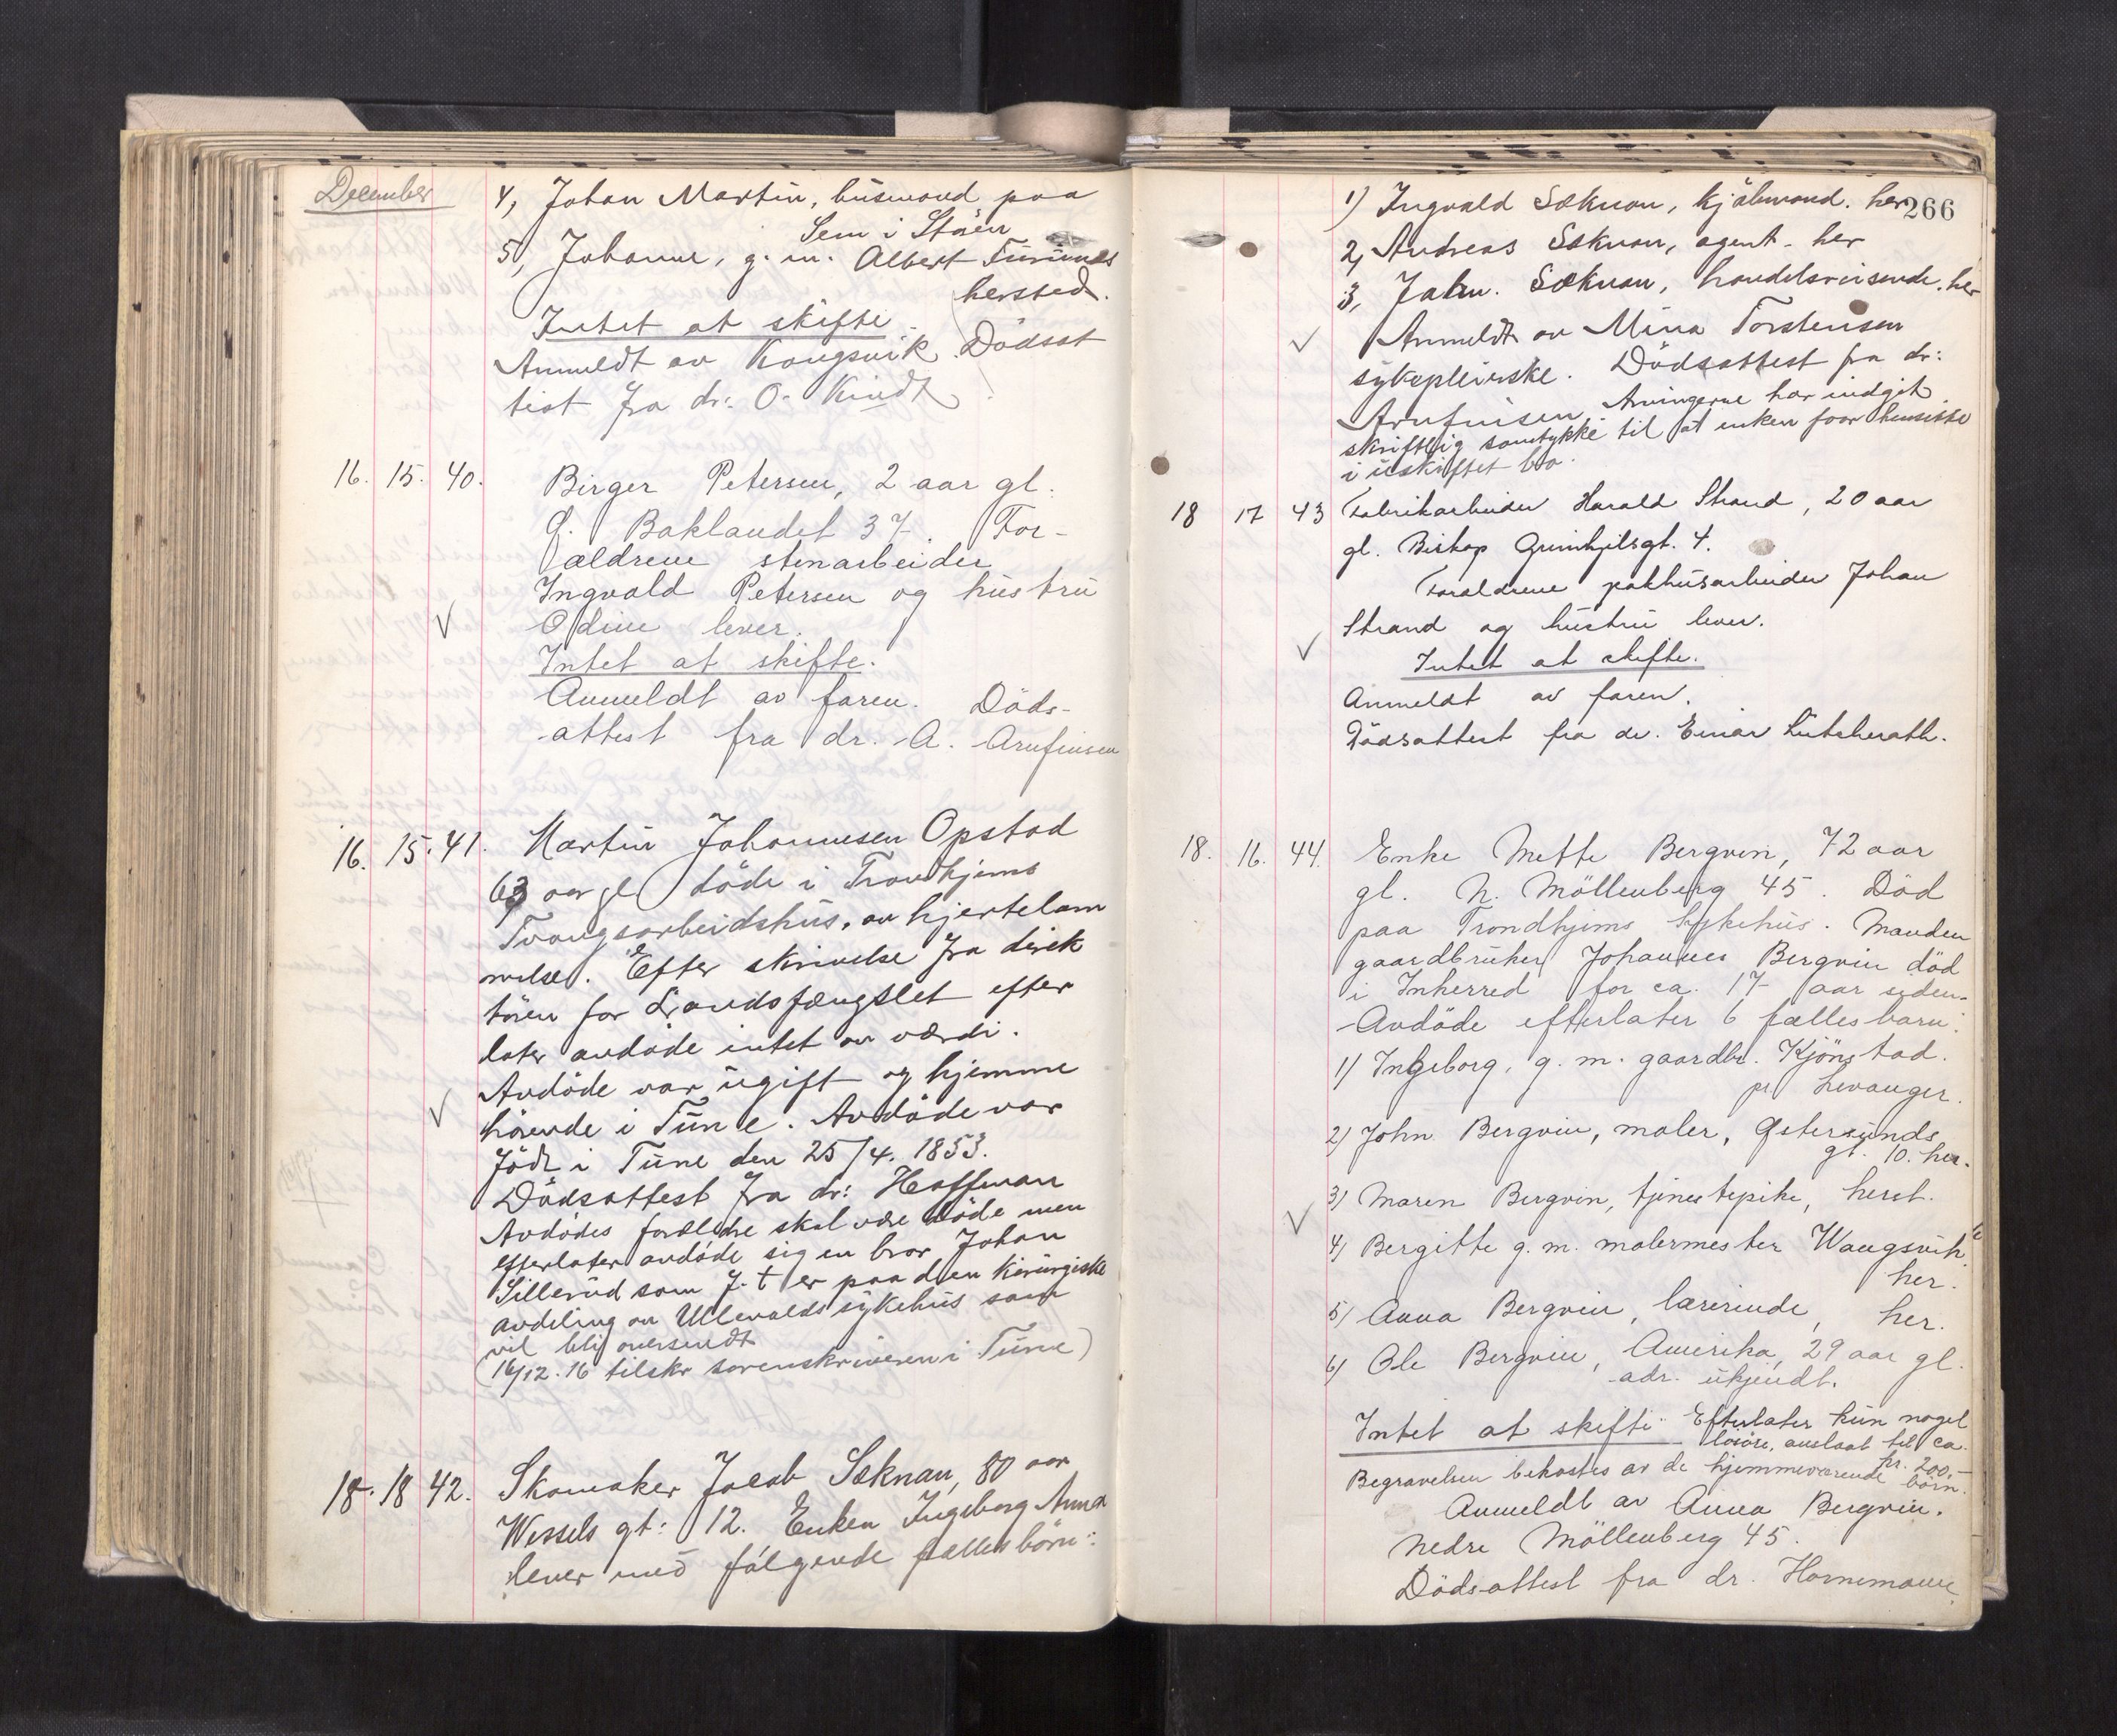 December
4, Johan Martin, husmand paa
Sem i Stören
5, Johanne, g. m. Albert Furunes
hersted.
Intet at skifte.
Anmeldt av Kongsvik. Dödsat
tist fra dr: O. Kindt
16. 15. 40. Birger Petersen, 2 aar gl.
Ø. Baklandet 37. For-
ældrene stenarbeider
Ingvald Petersen og hustru
Odine lever.
Intet at skifte.
Anmeldt av faren. Döds-
attest fra dr. A. Arnfinsen
16. 15. 41. Martin Johannesen Opstad
63 aar gl döde i Trondhjems
Tvangsarbeidshus, av hjertelam
melse. Efter skrivelse fra direk
tören for Landsfængslet efter
later avdöde intet av værdi.
Avdöde var ugift og hjemme
hörende i Tune. Avdöde var
född i Tune den 25/4. 1853.
Dödsattest fra dr: Hoffman
Avdödes forældre skal være döde men
efterlater avdöde sig en bror Johan
Sillerud som f. t er paa den kirurgiske
avdeling av Ullevalds sykehus som
vil bli oversendt
(16/12. 16 tilskr sorenskriveren i Tune)
18. 18 42. Skomaker Jacob Sæknan, 80 aar
Wessels gt: 12. Enken Ingeborg Anna
lever med følgende fælles börn:
266
1) Ingvald Sæknan, kjöbmand. her
2, Andreas Sæknan, agent - her
3, Jakw. Sæknan, handelsreisende. her
Anmeldt av Mina Torstensen
sykepleierske. Dödsattest fra dr:
Arnfinsen. Arvingerne har indgit
skriftlig samtykke til at enken faar hensitte
i uskiftet bo.
18 17 43 Fabrikarbeider Harald Strand, 20 aar
gl. Biskop Grimkjilsgt. 4.
Forældrene pakhusarbeider Johan
Strand og hustru lever.
Intet at skifte.
Anmeldt av faren.
Dödsattest fra dr. Einar Lütcherath.
18. 16. 44. Enke Mette Bergvin, 72 aar
gl. N. Möllenberg 45. Död
paa Trondhjems sykehus. Manden
gaardbruker Johannes Bergvin död
i Inherred for ca. 17 aar siden.
Avdöde efterlater 6 fællesbarn:
1) Ingeborg, g. m. gaardbr. Kjönstad.
pr Levanger.
2) John Bergvin, maler, Østersunds
gt. 10. her.
3) Maren Bergvin, tjenestepike, herst.
4) Bergitte g. m. malermester Waugsvik
her.
5) Anna Bergvin, lærerinde, her.
6) Ole Bergvin, Amerika, 29 aar gl.
adr. ukjendt.
Intet at skifte. Efterlater kun noget
lösöre, anslaat til ca.
kr. 200,-
Begravelsen bekostes av de hjemmeværende börn.
Anmeldt av Anna Bergvin.
Nedre Möllenberg 45.
Dödsattest fra dr. Hornemann.